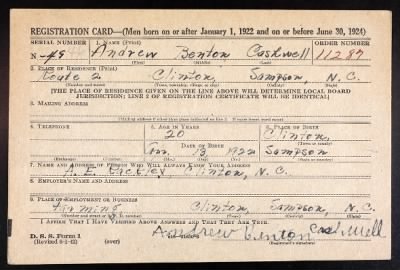 REGISTRATION CARD—(Men born on or after January 1, 1922 and on or before June 30, 1924)
SERIAL NUMBER 1. NAME (Print) ORDER NUMBER
N-49 Andrew Benton Cashwell 11287
(First) (Middle) (Last)
2. PLACE OF RESIDENCE (Print)
Route 2 Clinton, Sampson, N.C.
(Number and street) (Town, township, village, or city) (County) (State)
[THE PLACE OF RESIDENCE GIVEN ON THE LINE ABOVE WILL DETERMINE LOCAL BOARD
JURISDICTION; LINE 2 OF REGISTRATION CERTIFICATE WILL BE IDENTICAL]
3. MAILING ADDRESS
[Mailing address if other than place indicated on line 2. If same insert word same]
4. TELEPHONE 5. AGE IN YEARS 6. PLACE OF BIRTH
20 Clinton,
DATE OF BIRTH (Town or county)
13 1922 Sampson
(Exchange) (Number) (Mo.) (Day) (Yr.) (State or country)
7. NAME AND ADDRESS OF PERSON WHO WILL ALWAYS KNOW YOUR ADDRESS
A. E. Clinton, N.C.
8. EMPLOYER'S NAME AND ADDRESS
9. PLACE OF EMPLOYMENT OR BUSINESS
Farming Clinton, Sampson, N.C.
(Number and street or R. F. D. number) (Town) (County) (State)
I AFFIRM THAT I HAVE VERIFIED ABOVE ANSWERS AND THAT THEY ARE TRUE.
D. S. S. Form 1
(Revised 6-1-42) (over) Andrew Benton Cashwell